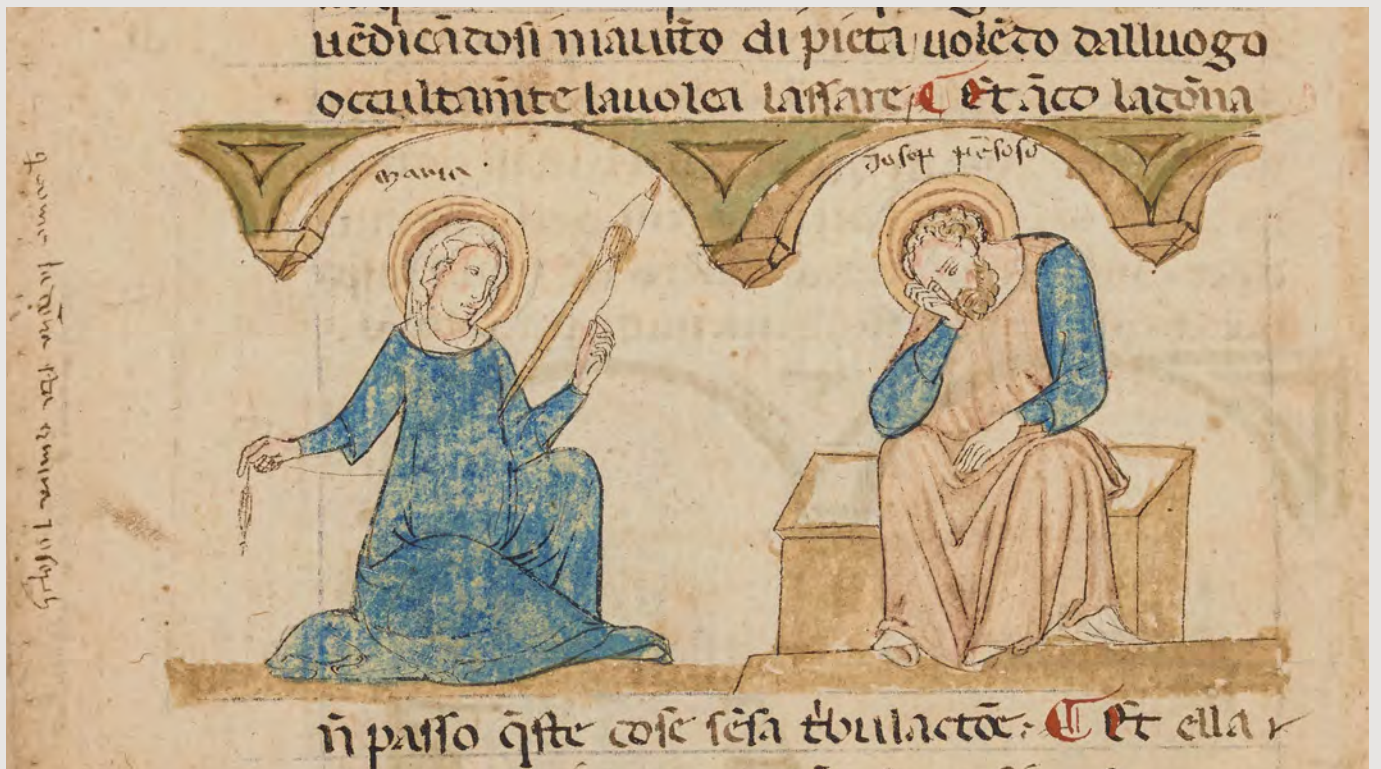 uēdicādosi mauītto di pieta uolēdo dalluogo
occultam̄te lauolea lassare ¶ Et āco ladōna
maria
Josep pēsoso
come ladōna sta
n̄ passo q̄ste cose sēsa tbulactōe. ¶ Et ella